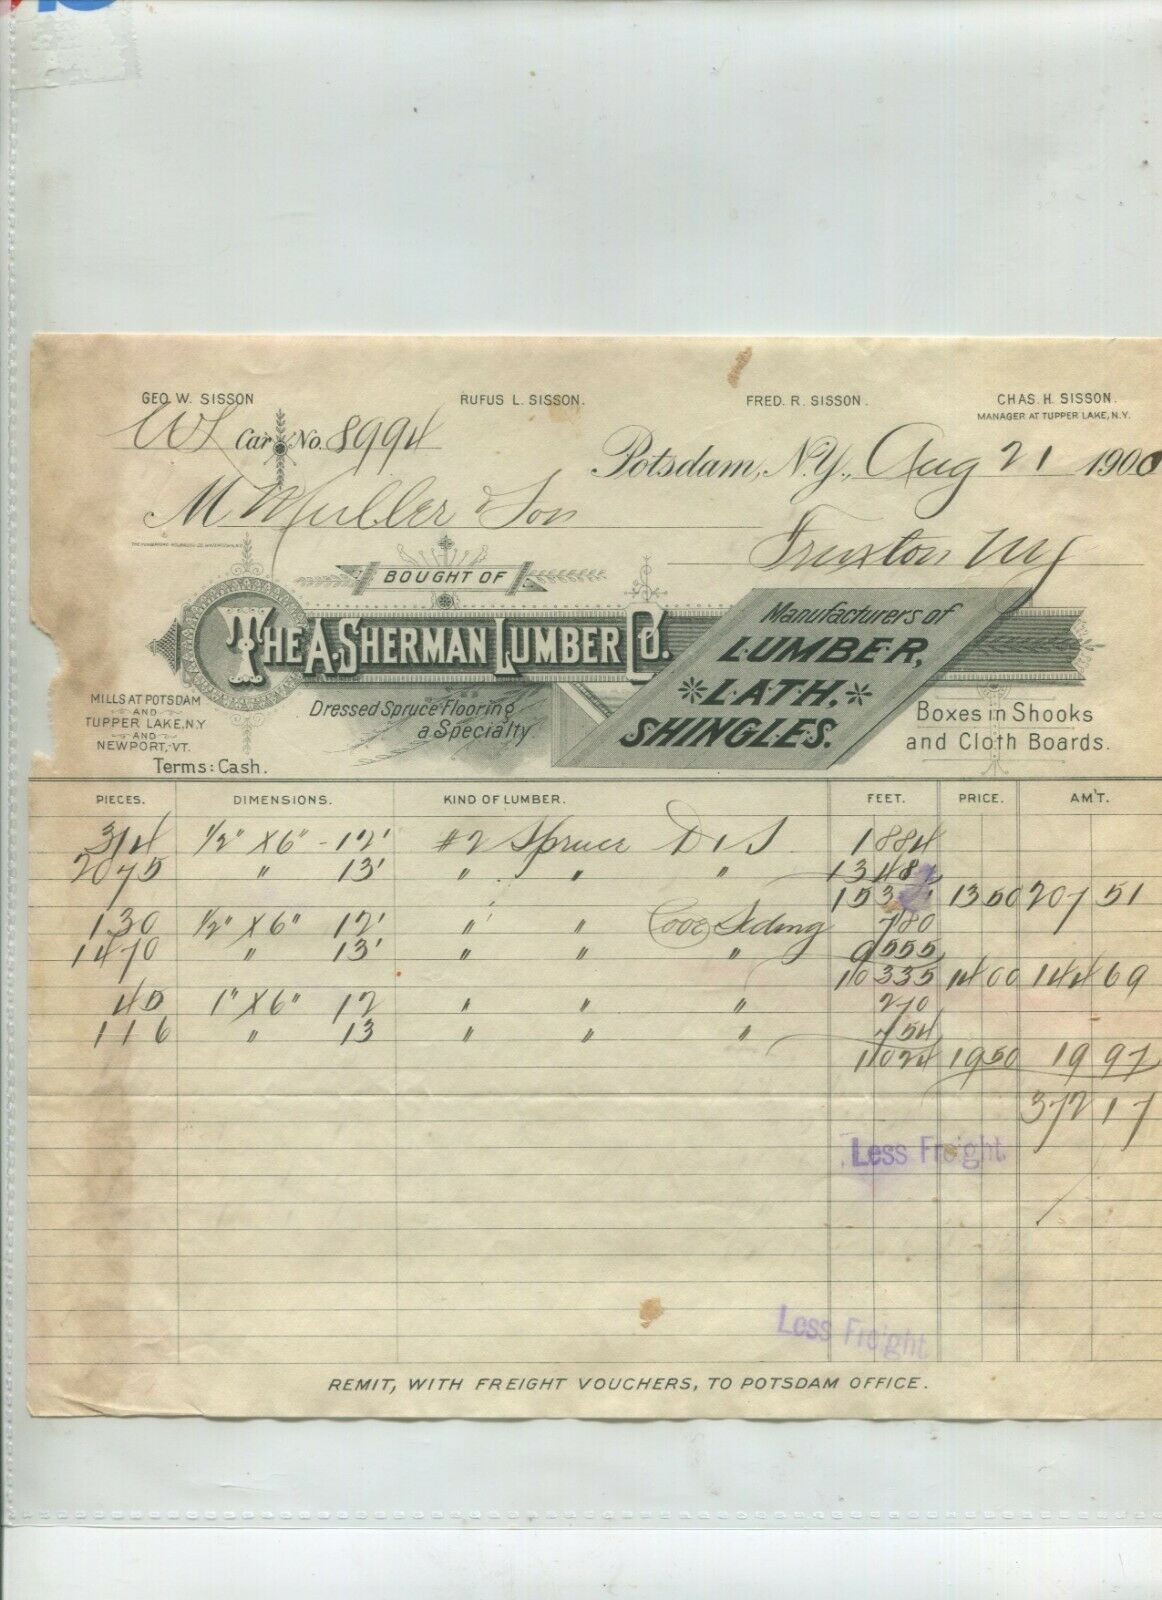 GEO. W. SISSON RUFUS L. SISSON. FRED. R. SISSON. CHAS. H. SISSON.
MANAGER AT TUPPER LAKE, N.Y.
Car No. 8994
Potsdam, N.Y., Aug 21 1900
M Muller & Son
Truxton NY
BOUGHT OF
THE A. SHERMAN LUMBER CO.
Manufacturers of
LUMBER,
LATH,
SHINGLES.
MILLS AT POTSDAM
AND
TUPPER LAKE, N.Y
AND
NEWPORT, VT.
Terms: Cash.
Dressed Spruce Flooring
a Specialty
Boxes in Shooks
and Cloth Boards.
PIECES. DIMENSIONS. KIND OF LUMBER. FEET. PRICE. AM'T.
314 1/2" X 6" - 12' #2 Spruce D1S 1884
2075 " 13' " " " 1348
153 1350 207 51
130 1/2" X 6" 12' " " Cove Siding 780
1470 " 13' " " " 9555
10335 1400 144 69
45 1" X 6" 12 " " " 270
116 " 13 " " " 754
1024 1950 19 97
372 17
Less Freight.
Less Freight
REMIT, WITH FREIGHT VOUCHERS, TO POTSDAM OFFICE.